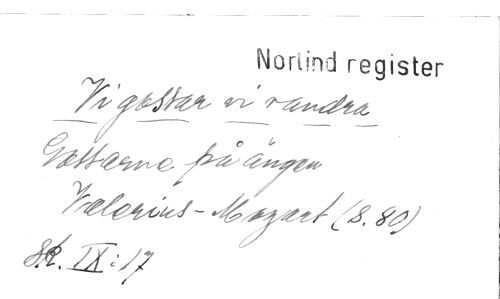 Norlind register
Vi gossar vi vandra
Gossarne på ängen
Valerius-Mozart (s. 80)
Sk. IX:17